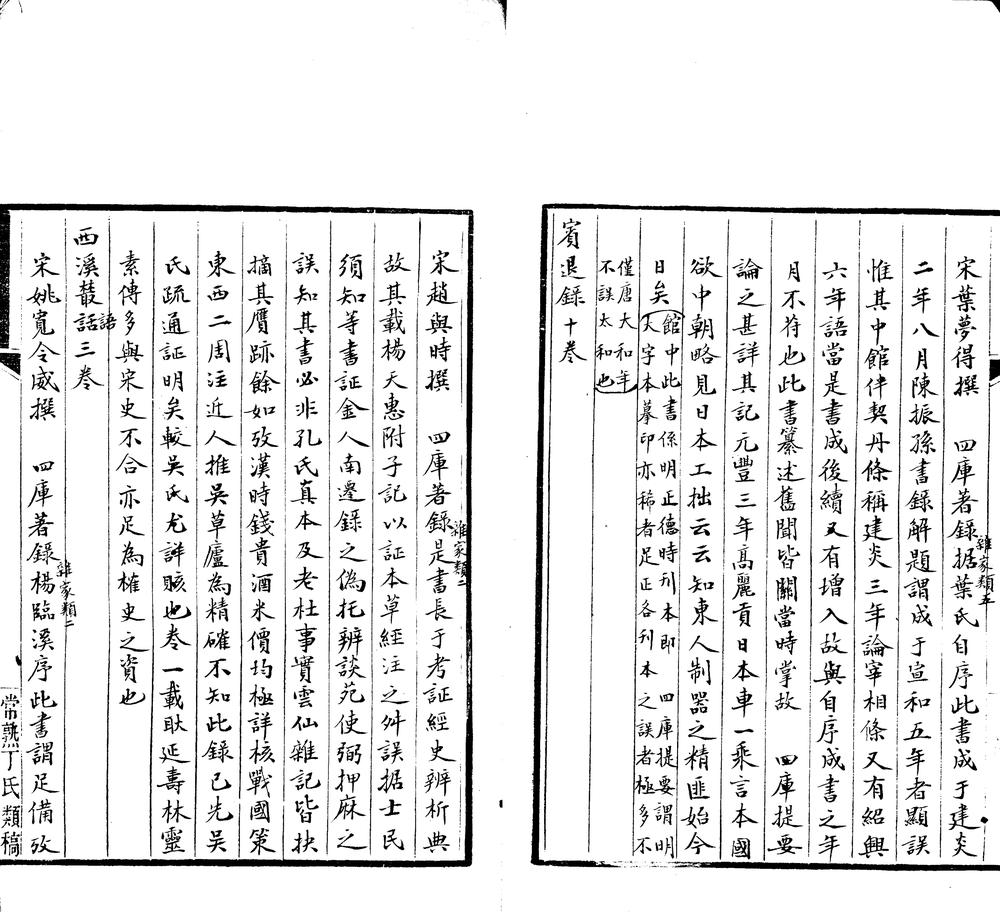 宋葉夢得撰　四庫著錄雜家類五据葉氏自序此書成于建炎
二年八月陳振孫書錄解題謂成于宣和五年者顯誤
惟其中館伴契丹條稱建炎三年論宰相條又有紹興
六年語當是書成後續又有增入故與自序成書之年
月不符也此書纂述舊聞皆關當時掌故　四庫提要
論之甚詳其記元豐三年高麗貢日本車一乘言本國
欲中朝略見日本工拙云云知東人制器之精匪始今
日矣館中此書係明正德時刊本即　四庫提要謂明
大字本摹印亦稀者足正各刊本之誤者極多不
僅唐大和年
不誤太和也
賓退錄十卷
宋趙與時撰　四庫著錄雜家類二是書長于考証經史辨析典
故其載楊天惠附子記以証本草經注之舛誤据士民
須知等書証金人南遷錄之偽托辨談苑使弼押麻之
誤知其書必非孔氏真本及老杜事實雲仙雜記皆抉
摘其贋跡餘如攷漢時錢貴酒米價均極詳核戰國策
東西二周注近人推吳草廬為精確不知此錄已先吳
氏疏通証明矣較吳氏尤詳賅也卷一載耿延壽林靈
素傳多與宋史不合亦足為榷史之資也
西溪叢話語三卷
宋姚寬令威撰　四庫著錄雜家類二楊臨溪序此書謂足備攷
常熟丁氏類稿